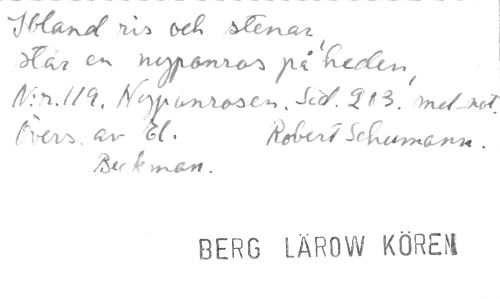 Ibland ris och stenar,
står en nyponros på heden,
N:r. 119. Nyponrosen. Sid. 213. mel-not.
Övers. av El. Robert Schumann.
Beckman.
BERG LÄROW KÖREN